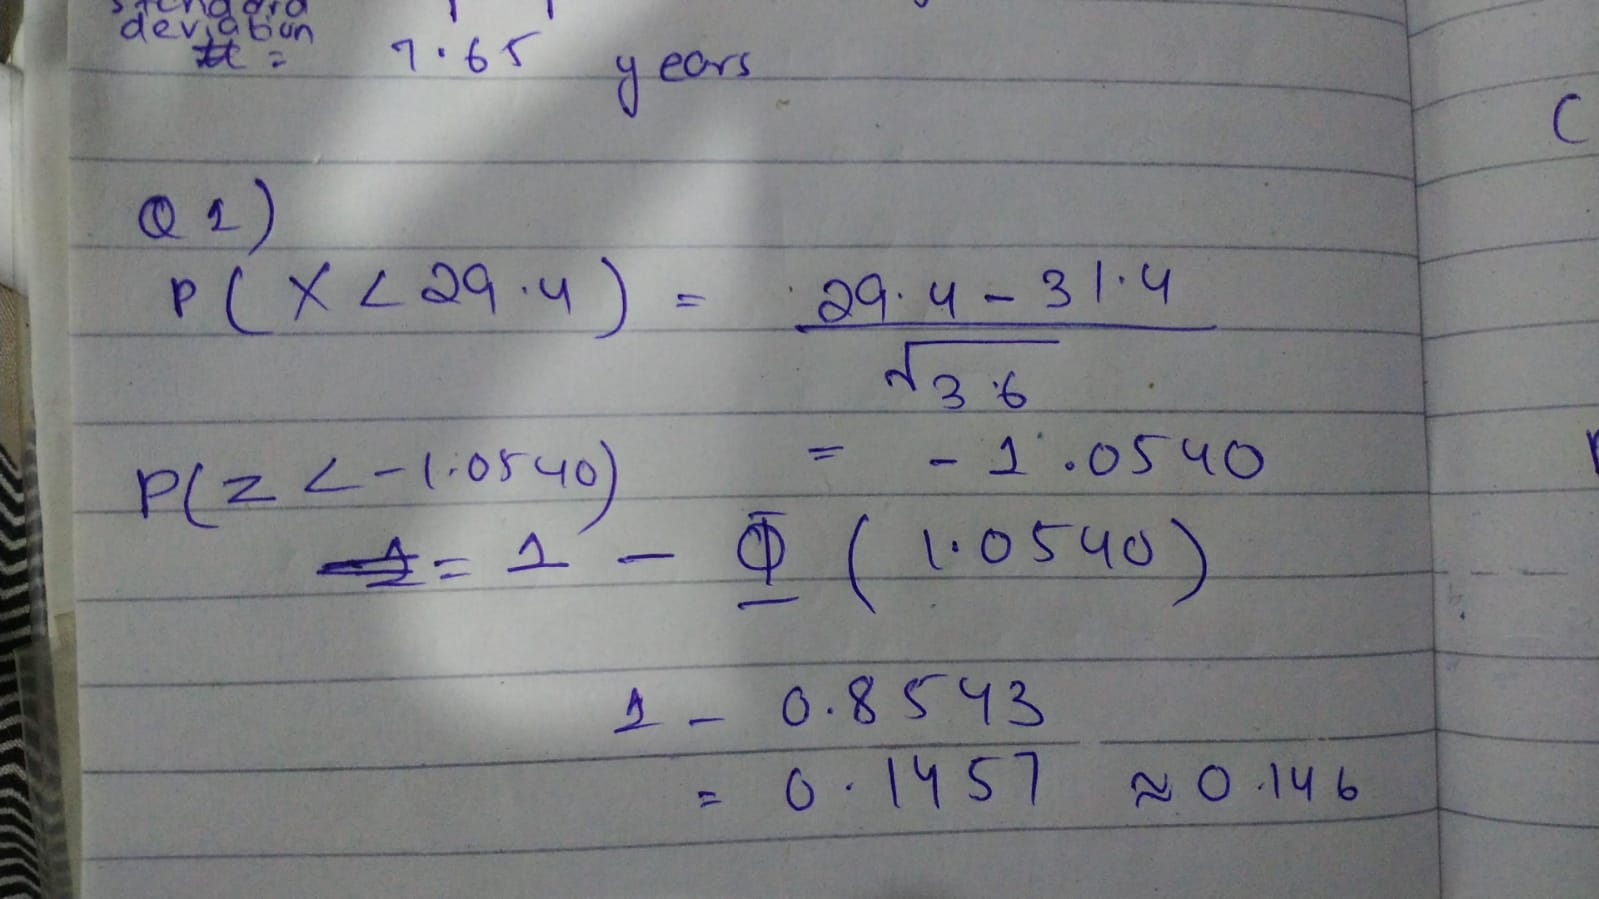 standard
deviation
= 7.65 years
Q1)
P(X < 29.4) = 29.4 - 31.4
√3.6
P(Z < -1.0540) = -1.0540
= 1 - Φ (1.0540)
1 - 0.8543
= 0.1457 ≈ 0.146
C